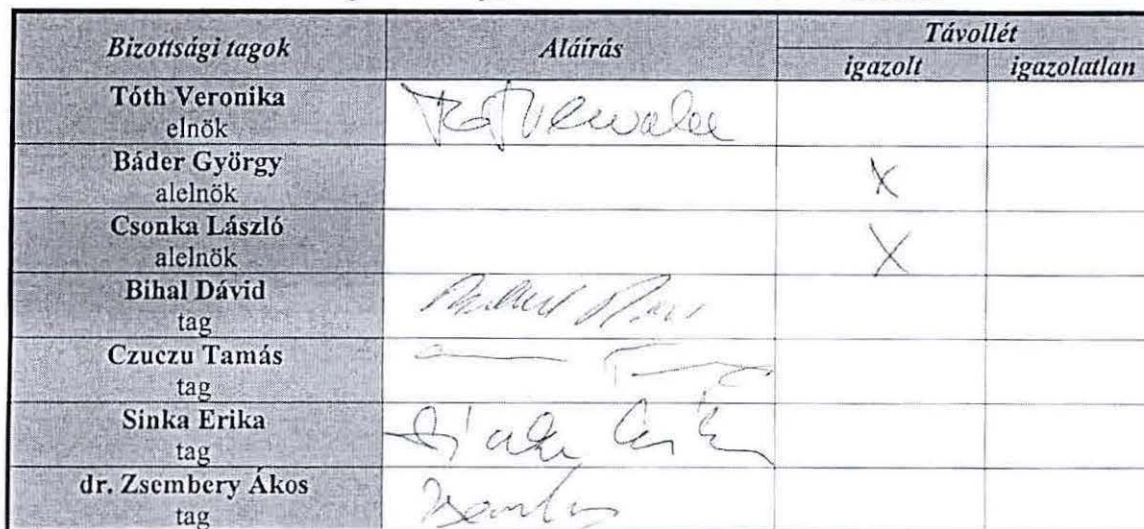 Bizottsági tagok Aláírás Távollét
igazolt igazolatlan
Tóth Veronika
elnök
Báder György
alelnök X
Csonka László
alelnök X
Bihal Dávid
tag
Czuczu Tamás
tag
Sinka Erika
tag
dr. Zsembery Ákos
tag